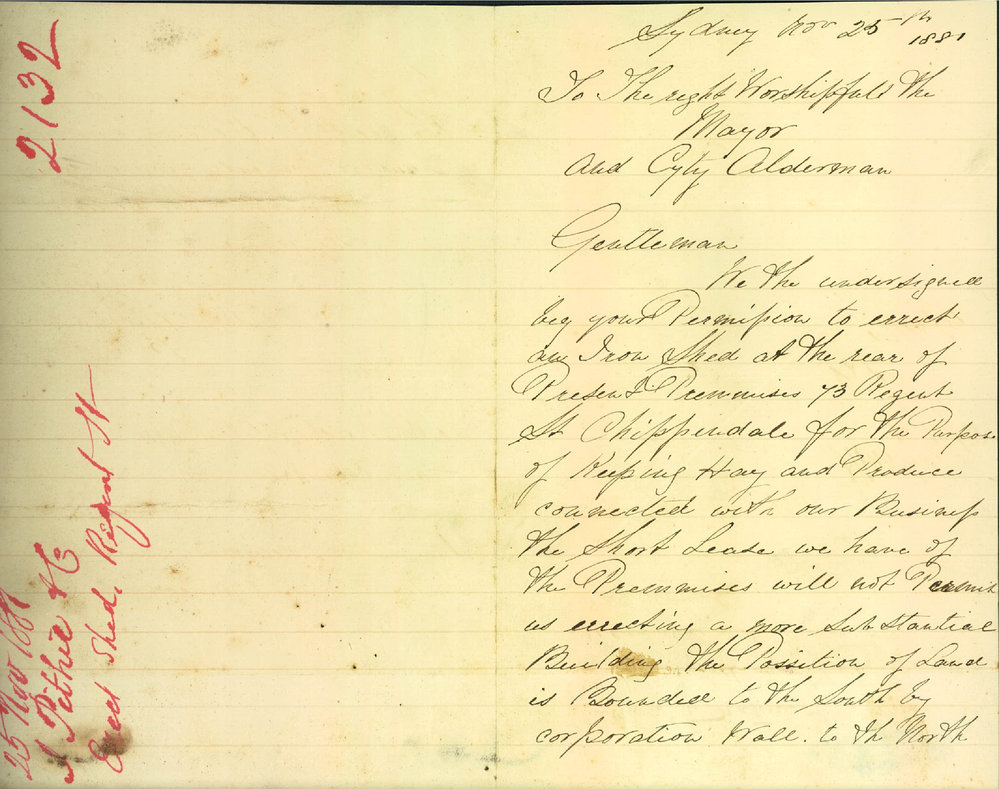 2132
25 Nov 1881
J Pethie & Co
Erect Shed, Regent St
Sydney Nov 25th
1881
To The right Worshipfull the
Mayor
and Cyty Alderman
Gentleman
We the undersigned
beg your Permission to errect
an Iron Shed at the rear of
Present Premmises 73 Regent
St Chippendale for the Purpose
of Keeping Hay and Produce
connected with our Business
the Short Lease we have of
the Premmises will not Permit
us errecting a more substantial
Building the Possition of Land
is Bounded to the South by
corporation Wall. to th North